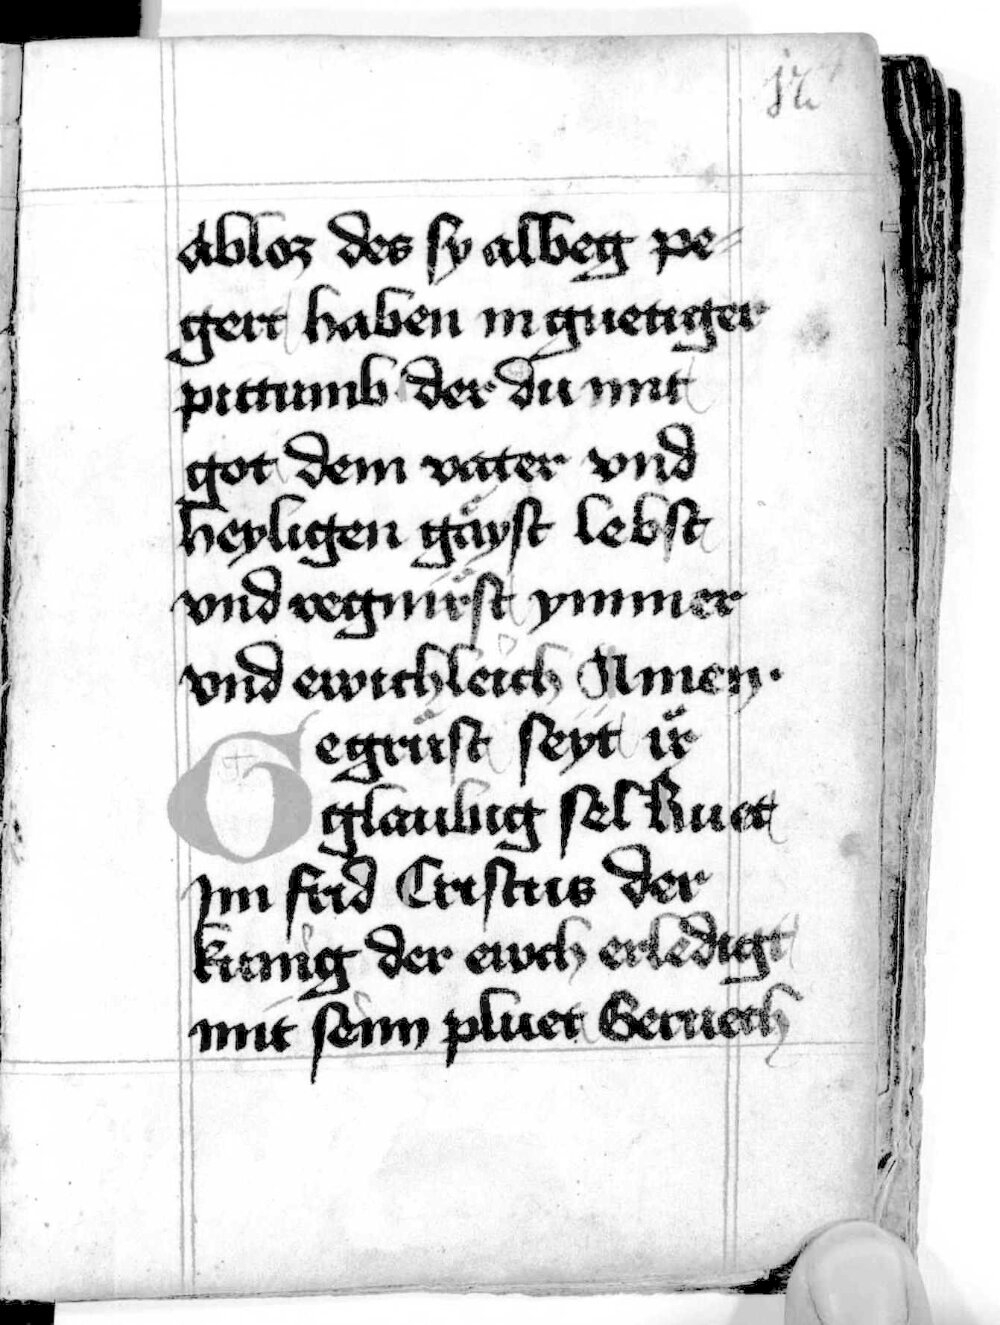 17
abloz des sy albeg pe-
gert haben in guetiger
pittumb der du mit
got dem vater vnd
heyligen gäyst lebst
vnd regnirst ymmer
vnd ewichleich Amen.
Gegrüst seyt ir
glaubig sel Ruet
Im frid Cristus der
kunig der ewch erledigt
mit seinn pluet Gerueth